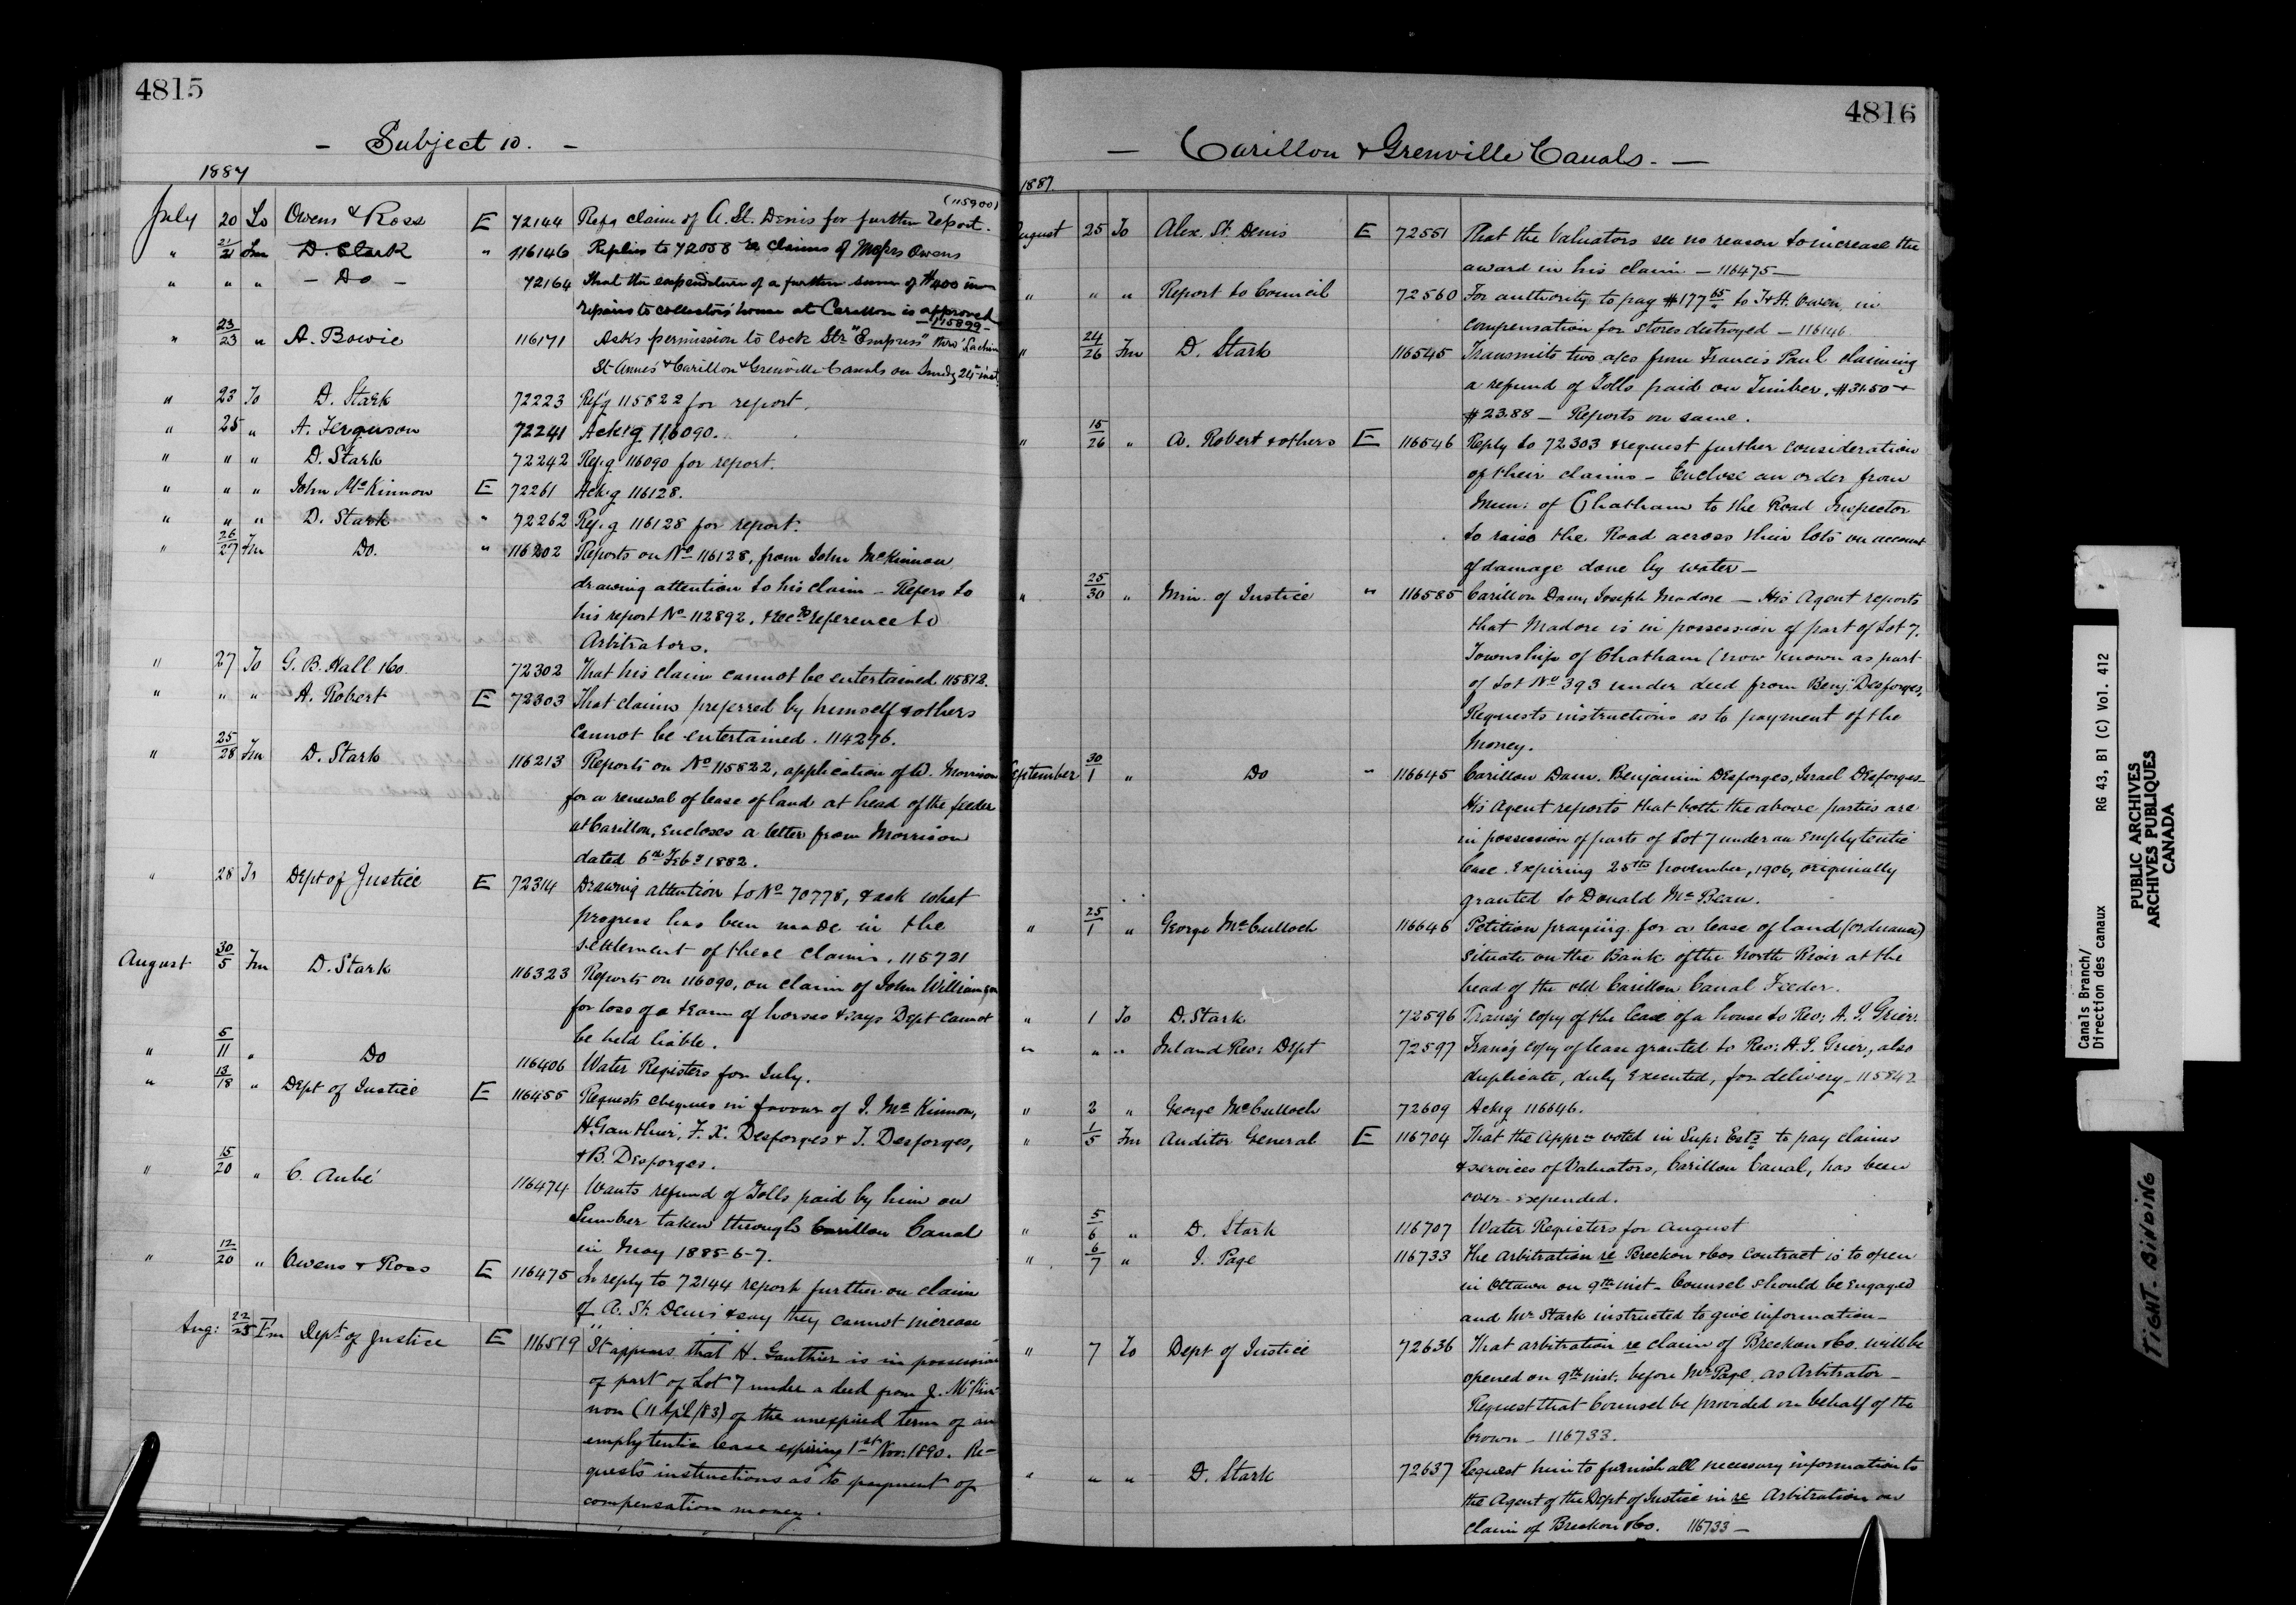 4815
- Subject 10. -
1887
July 20 To Owens & Ross E 72144 Refg claim of A. St. Denis for further report. (115900)
" 21/21 Fm D. Stark " 116146 Replies to 72058 re claims of Messrs Owens
" " " - Do - 72164 That the expenditure of a further sum of $400 in
repairs to collector's house at Carillon is approved
- 115899 -
" 23/23 " A. Bowie 116171 Asks permission to lock Str "Empress" thro' Lachine
St Annes & Carillon & Grenville Canals on Sunday 24th inst.
" 23 To D. Stark 72223 Ref'g 115822 for report.
" 25 " A. Ferguson 72241 Ack'g 116090.
" " " D. Stark 72242 Ref.g 116090 for report.
" " " John McKinnon E 72261 Ack.g 116128.
" " " D. Stark " 72262 Ref.g 116128 for report.
" 26/27 Fm Do. " 116202 Reports on No 116128, from John McKinnon
drawing attention to his claim - Refers to
his report No 112892, & recds reference to
Arbitrators.
" 27 To G. B. Hall &Co. 72302 That his claim cannot be entertained 115812.
" " " A. Robert E 72303 That claims preferred by himself & others
cannot be entertained. 114296.
" 25/28 Fm D. Stark 116213 Reports on No 115822, application of W. Morrison
for a renewal of lease of land at head of the feeder
at Carillon, encloses a letter from Morrison
dated 6th Feby 1882.
" 28 To Dept of Justice E 72314 Drawing attention to No 70778, & ask what
progress has been made in the
settlement of these claims. 115721
August 30/5 Fm D. Stark 116323 Reports on 116090, on claim of John Williamson
for loss of a team of horses & says Dept cannot
be held liable.
" 5/11 " Do 116406 Water Registers for July.
" 13/18 " Dept of Justice E 116455 Requests cheques in favour of J. McKinnon,
H. Gauthier, F. X. Desforges & I. Desforges,
& B. Desforges.
" 15/20 " C. Aubé 116474 Wants refund of Tolls paid by him on
Lumber taken through Carillon Canal
in May 1885-6-7.
" 12/20 " Owens & Ross E 116475 In reply to 72144 report further on claim
of A. St. Denis & say they cannot increase
Aug: 22/25 Fm Dept of Justice E 116519 It appears that H. Gauthier is in possession
of part of Lot 7 under a deed from J. McKin-
non (11 Apl/83) of the unexpired term of an
emplytentic lease expiring 1st Nov. 1890. Re-
quests instructions as to payment of
compensation money.
4816
- Carillon & Grenville Canals. -
1887.
August 25 To Alex. St. Denis E 72551 That the Valuators see no reason to increase the
award in his claim - 116475 -
" " " Report to Council 72560 For authority to pay $177 65 to T & H. Owen in
compensation for stores destroyed - 116146
" 24/26 Fm D. Stark 116545 Transmits two a/cs from Francis Paul claiming
a refund of Tolls paid on Timber. $31.50 +
$23.88 - Reports on same.
" 15/26 " A. Robert & others E 116546 Reply to 72303 & request further consideration
of their claims - Enclose an order from
Mun: of Chatham to the Road Inspector
to raise the Road across their lots on account
of damage done by water -
" 25/30 " Min. of Justice " 116585 Carillon Dam, Joseph Madore - His Agent reports
that Madore is in possession of part of Lot 7.
Township of Chatham (now known as part
of Lot No 393 under deed from Benj: Desforges,
Requests instructions as to payment of the
money.
September 30/1 " Do " 116645 Carillon Dam. Benjamin Desforges, Israel Desforges -
His Agent reports that both the above parties are
in possession of parts of Lot 7 under an emplytentic
lease. expiring 25th November, 1906, originally
granted to Donald McBean.
" 25/1 " George McCulloch 116646 Petition praying for a lease of land (ordnance)
situate on the Bank of the North River at the
head of the old Carillon Canal Feeder.
" 1 To D. Stark 72596 Transg copy of the lease of a house to Rev: A. J. Grier.
" " " Inland Rev: Dept 72597 Transg copy of lease granted to Rev: A. J. Grier, also
duplicate, duly executed, for delivery - 115842
" 2 " George McCulloch 72609 Ackg 116646.
" 1/5 Fm Auditor General E 116704 That the Appr voted in Sup: Ests to pay claims
& services of Valuators, Carillon Canal, has been
over-expended.
" 5/6 " D. Stark 116707 Water Registers for August
" 6/7 " J. Page 116733 The arbitration re Breckon & Cos contract is to open
in Ottawa on 9th inst - Counsel should be engaged
and Mr Stark instructed to give information -
" 7 To Dept of Justice 72636 That arbitration re claim of Breckon & Co. will be
opened on 9th inst. before Mr Page, as Arbitrator -
Request that Counsel be provided on behalf of the
Crown - 116733.
" " " D. Stark 72637 Request him to furnish all necessary information to
the Agent of the Dept of Justice in re Arbitration on
claim of Breckon & Co. 116733 -
Canals Branch/
Direction des canaux RG 43, B1 (C) Vol. 412
PUBLIC ARCHIVES
ARCHIVES PUBLIQUES
CANADA
TIGHT-BINDING